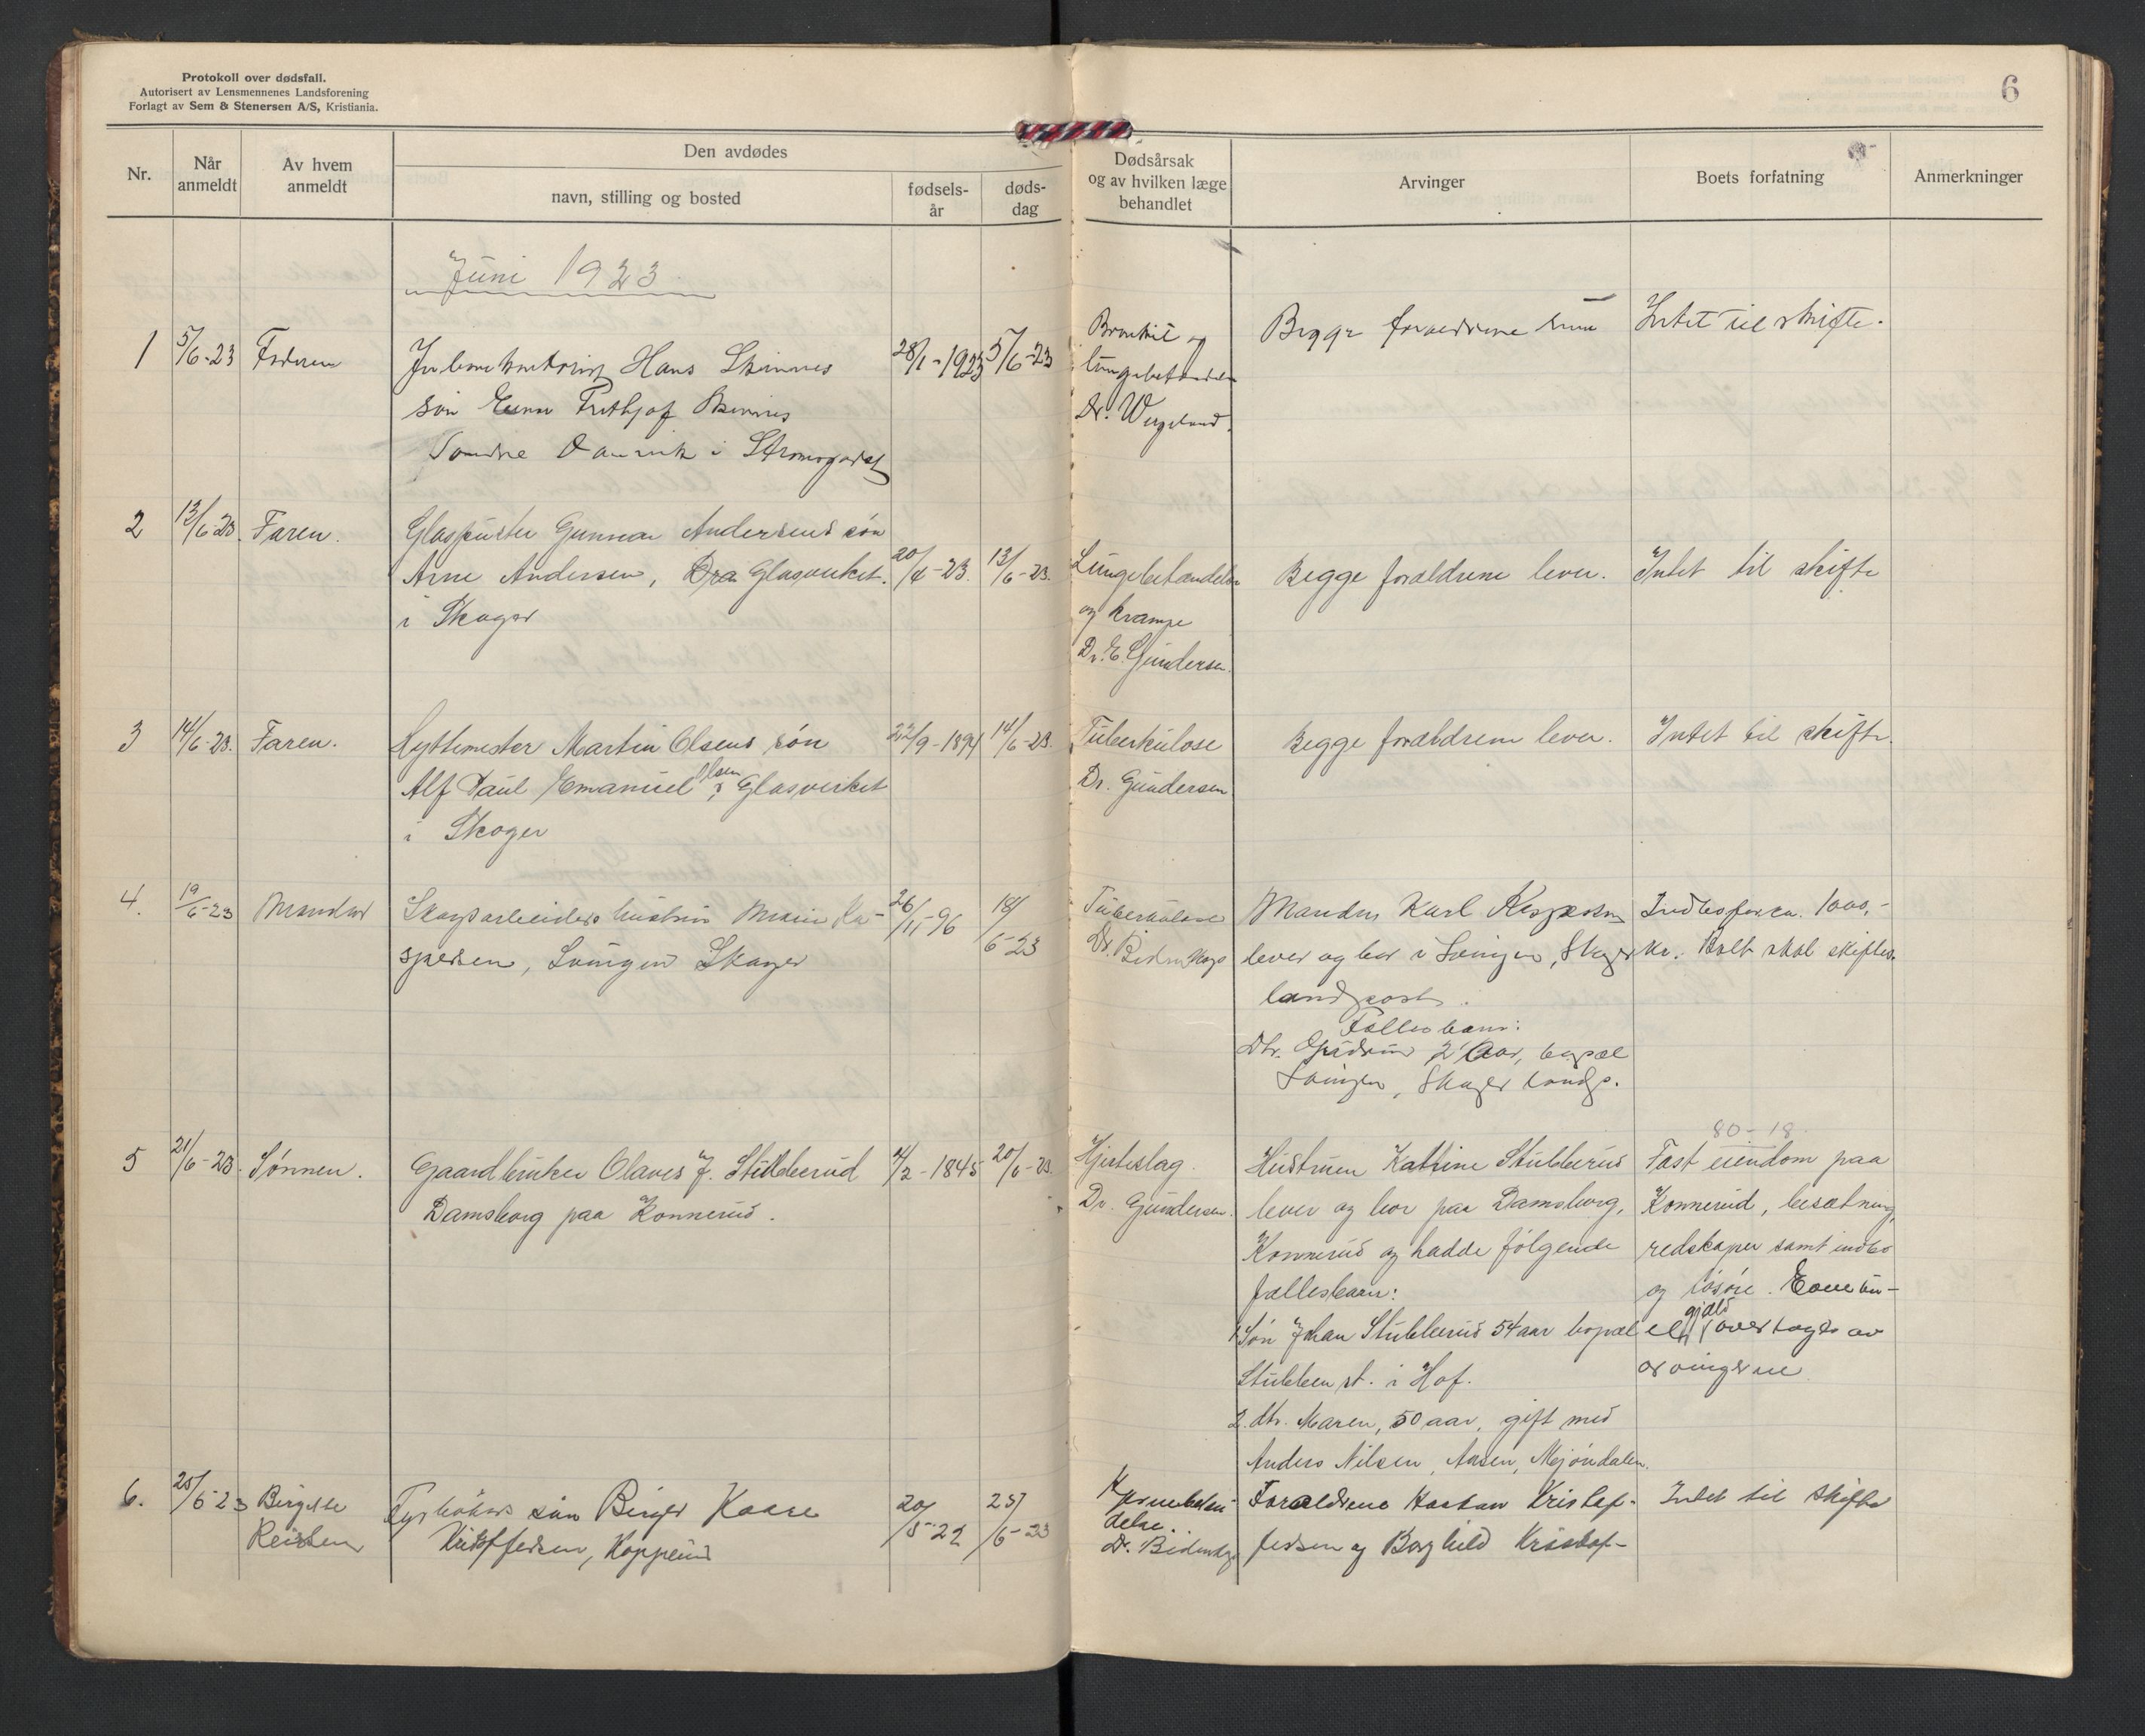 Protokoll over dødsfall.
Autorisert av Lensmennenes Landsforening
Forlagt av Sem & Stenersen A/S, Kristiania.
6
Nr.
Når
anmeldt
Av hvem
anmeldt
Den avdødes
navn, stilling og bosted
fødsels-
år
døds-
dag
Dødsårsak
og av hvilken læge
behandlet
Arvinger
Boets forfatning
Anmerkninger
Juni 1923
1 5/6-23 Hans Skinnes 28/1-1923 5/6-23
søn Frithjof Skinnes
i Strømsgodset
Bronkit og
Dr. Wergeland.
Begge Intet til skifte.
2 13/6-23. Faren. Glaspuster Gunnar Andersens søn
Arne Andersen, Dra. Glasverket. 20/4-23. 13/6-23.
i Skoger
Lungebetændelse
og krampe
Dr. E. Gundersen.
Begge forældrene lever. Intet til skifte
3 14/6-23. Faren. Hyttemester Martin Olsens søn 22/9-1894 14/6-23.
Alf Paul Emanuel Olsen, Glasverket
i Skoger
Tuberkulose
Dr. Gundersen
Begge forældrene lever. Intet til skifte.
4. 19/6-23 Manden hustru Marie Ka- 26/11-96 18/6-23
spersen, Skoger
Tuberkulose
Dr. Bidenkap
Manden Karl Kaspersen
lever og bor i Skoger
landpost.
Fællesbarn:
Dtr. 2 Aar, bopæl
Skoger landp.
Indbo for ca. 1000,-
kr. Boet skal skiftes.
5 21/6-23. Sønnen. Gaardbruker Olaves J. Stubberud 4/2-1845 20/6-23.
Damsborg paa Konnerud.
Hjerteslag.
Dr. Gundersen.
Hustruen Katrine Stubberud
lever og bor paa Damsborg,
Konnerud og hadde følgende
fællesbarn:
1 Søn Johan Stubberud 54 aar bopæl
Stubben st. i Hof.
2. dtr. Maren, 50 aar, gift med
Anders Nilsen, Aasen, Mjøndalen.
80-18.
Fast eiendom paa
Konnerud, besætning,
redskaper samt indbo
og løsøre. Eventu-
el gjæld overtages av
arvingerne
6. 25/6-23 Birgitte
Reisten
Fyrbøters søn Birger Kaare 20/5-22 25/6-23
Kristoffersen, Kopperud
Dr. Bidenkap
Forældrene Kristof-
fersen og Borghild Kristof-
Intet til skifte